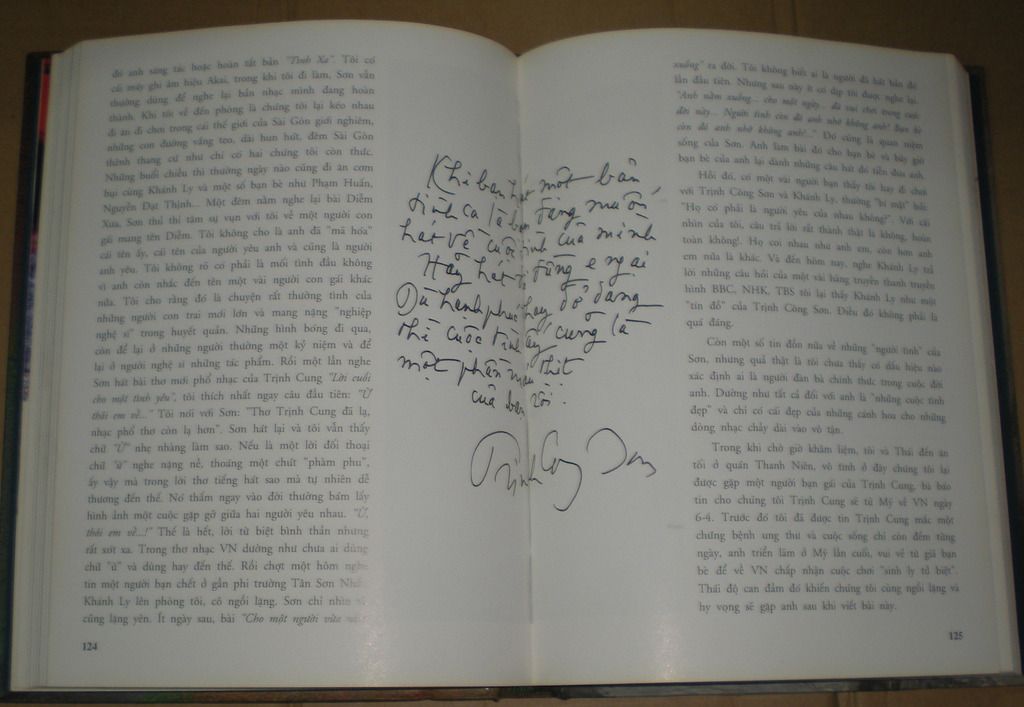 đó anh sáng tác hoặc hoàn tất bản "Tình Xa". Tôi có
cái máy ghi âm hiệu Akai, trong khi tôi đi làm, Sơn vẫn
thường dùng để nghe lại bản nhạc mình đang hoàn
thành. Khi tôi về đến phòng là chúng tôi lại kéo nhau
đi ăn đi chơi trong cái thế giới của Sài Gòn giới nghiêm,
những con đường vắng teo, dài hun hút, đêm Sài Gòn
thênh thang cứ như chỉ có hai chúng tôi còn thức.
Những buổi chiều thì thường ngày nào cũng đi ăn cơm
bụi cùng Khánh Ly và một số bạn bè như Phạm Huấn,
Nguyễn Đạt Thịnh... Một đêm nằm nghe lại bài Diễm
Xưa, Sơn thủ thỉ tâm sự vụn với tôi về một người con
gái mang tên Diễm. Tôi không cho là anh đã "mã hóa"
cái tên ấy, cái tên của người yêu anh và cũng là người
anh yêu. Tôi không rõ có phải là mối tình đầu không
vì anh còn nhắc đến tên một vài người con gái khác
nữa. Tôi cho rằng đó là chuyện rất thường tình của
những người con trai mới lớn và mang nặng "nghiệp
nghệ sĩ" trong huyết quản. Những hình bóng đi qua,
còn để lại ở những người thường một kỷ niệm và để
lại ở người nghệ sĩ những tác phẩm. Rồi một lần nghe
Sơn hát bài thơ mới phổ nhạc của Trịnh Cung "Lời cuối
cho một tình yêu", tôi thích nhất ngay câu đầu tiên: "Ừ
thôi em về..." Tôi nói với Sơn: "Thơ Trịnh Cung đã lạ,
nhạc phổ thơ còn lạ hơn". Sơn hát lại và tôi vẫn thấy
chữ "Ừ" nhẹ nhàng làm sao. Nếu là một lời đối thoại
chữ "ừ" nghe nặng nề, thoáng một chút "phàm phu",
ấy vậy mà trong lời thơ tiếng hát sao mà tự nhiên dễ
thương đến thế. Nó thấm ngay vào đời thường bấm lấy
hình ảnh một cuộc gặp gỡ giữa hai người yêu nhau. "Ừ,
thôi em về...!" Thế là hết, lời từ biệt bình thản nhưng
rất xót xa. Trong thơ nhạc VN dường như chưa ai dùng
chữ "ừ" và dùng hay đến thế. Rồi chợt một hôm nghe
tin một người bạn chết ở gần phi trường Tân Sơn Nhất
Khánh Ly lên phòng tôi, cô ngồi lặng. Sơn chỉ nhìn
cũng lặng yên. Ít ngày sau, bài "Cho một người vừa nằm
124
Khi bạn hát một bản
tình ca là bạn đang muốn
hát về cuộc tình của mình
Hãy hát đừng e ngại
Dù hạnh phúc hay dở dang
thì cuộc tình ấy cũng là
một phần máu thịt
của bạn rồi.
Trịnh Công Sơn
xuống" ra đời. Tôi không biết ai là người đã hát bản đó
lần đầu tiên. Nhưng sau này ít có dịp tôi được nghe lại.
"Anh nằm xuống... cho một ngày.. đã vui chơi trong cuộc
đời này... Người tình còn đó anh nhớ không anh! Bạn bè
còn đó anh nhớ không anh!..." Đó cũng là quan niệm
sống của Sơn. Anh làm bài đó cho bạn bè và bây giờ
bạn bè của anh lại dành những câu hát đó tiễn đưa anh.
Hồi đó, có một vài người bạn thấy tôi hay đi chơi
với Trịnh Công Sơn và Khánh Ly, thường "bí mật" hỏi:
"Họ có phải là người yêu của nhau không?". Với cái
nhìn của tôi, câu trả lời rất thành thật là không, hoàn
toàn không!. Họ coi nhau như anh em, còn hơn anh
em nữa là khác. Và đến hôm nay, nghe Khánh Ly trả
lời những câu hỏi của một vài hãng truyền thanh truyền
hình BBC, NHK, TBS tôi lại thấy Khánh Ly như một
"tín đồ" của Trịnh Công Sơn. Điều đó không phải là
quá đáng.
Còn một số tin đồn nữa về những "người tình" của
Sơn, nhưng quả thật là tôi chưa thấy có dấu hiệu nào
xác định ai là người đàn bà chính thức trong cuộc đời
anh. Dường như tất cả đối với anh là "những cuộc tình
đẹp" và chỉ có cái đẹp của những cánh hoa cho những
dòng nhạc chảy dài vào vô tận.
Trong khi chờ giờ khâm liệm, tôi và Thái đến ăn
tối ở quán Thanh Niên, vô tình ở đây chúng tôi lại
được gặp một người bạn gái của Trịnh Cung, bà báo
tin cho chúng tôi Trịnh Cung sẽ từ Mỹ về VN ngày
6-4. Trước đó tôi đã được tin Trịnh Cung mắc một
chứng bệnh ung thư và cuộc sống chỉ còn đếm từng
ngày, anh triển lãm ở Mỹ lần cuối, vui vẻ từ giã bạn
bè để về VN chấp nhận cuộc chơi "sinh ly tử biệt".
Thái độ can đảm đó khiến chúng tôi cùng ngồi lặng và
hy vọng sẽ gặp anh sau khi viết bài này.
125